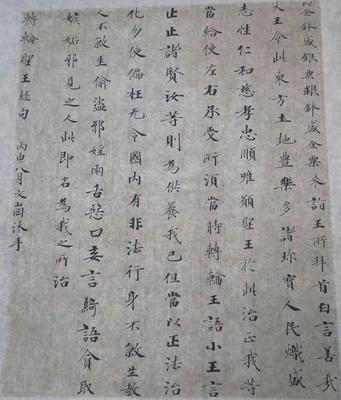 以金鉢盛銀粟銀鉢盛金粟來詣王所拜首白言善哉
大王今此東方土地豐樂多諸珍寶人民熾盛
志性仁和慈孝忠順唯願聖王於此治正我等
當給使左右承受所須當時轉輪王語小王言
止止諸賢汝等則為供養我已但當以正法治
化勿使偏枉无令國內有非法行身不殺生教
人不殺生偷盜邪婬兩舌惡口妄言綺語貪取
嫉妬邪見之人此即名為我之所治
轉輪聖王經句
丙申八月文